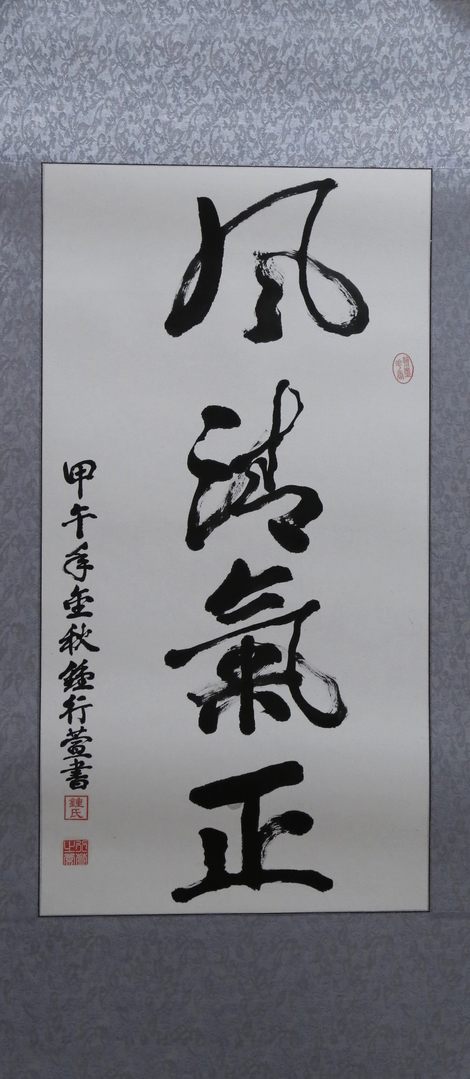 风清氣正
甲午年金秋鍾行萱書
鍾氏